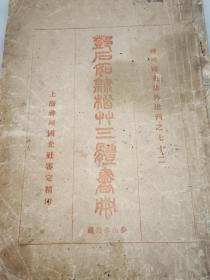 神州國光集外增刊之七十二
鄧石如隸楷草三體書冊
上海神州國光社審定精印